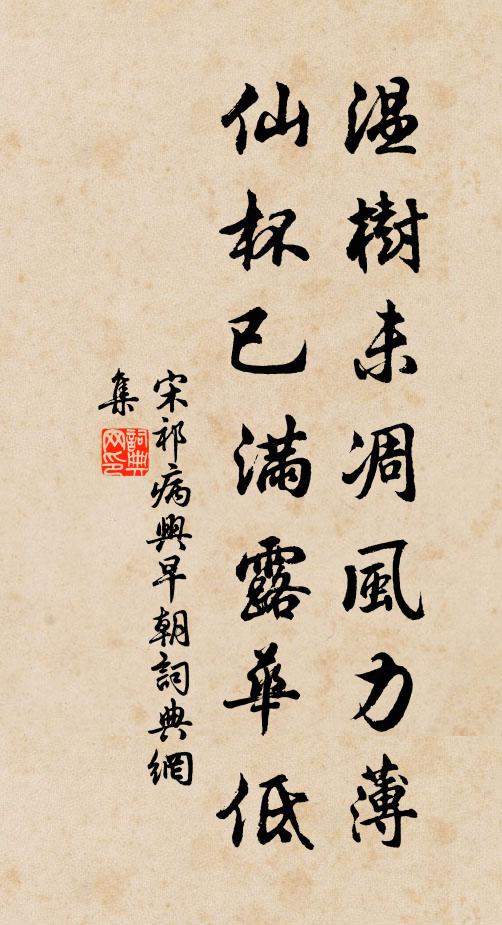 温樹未凋風力薄
仙杯已滿露華低
宋祁病興早朝詞典網
集
詞典網印